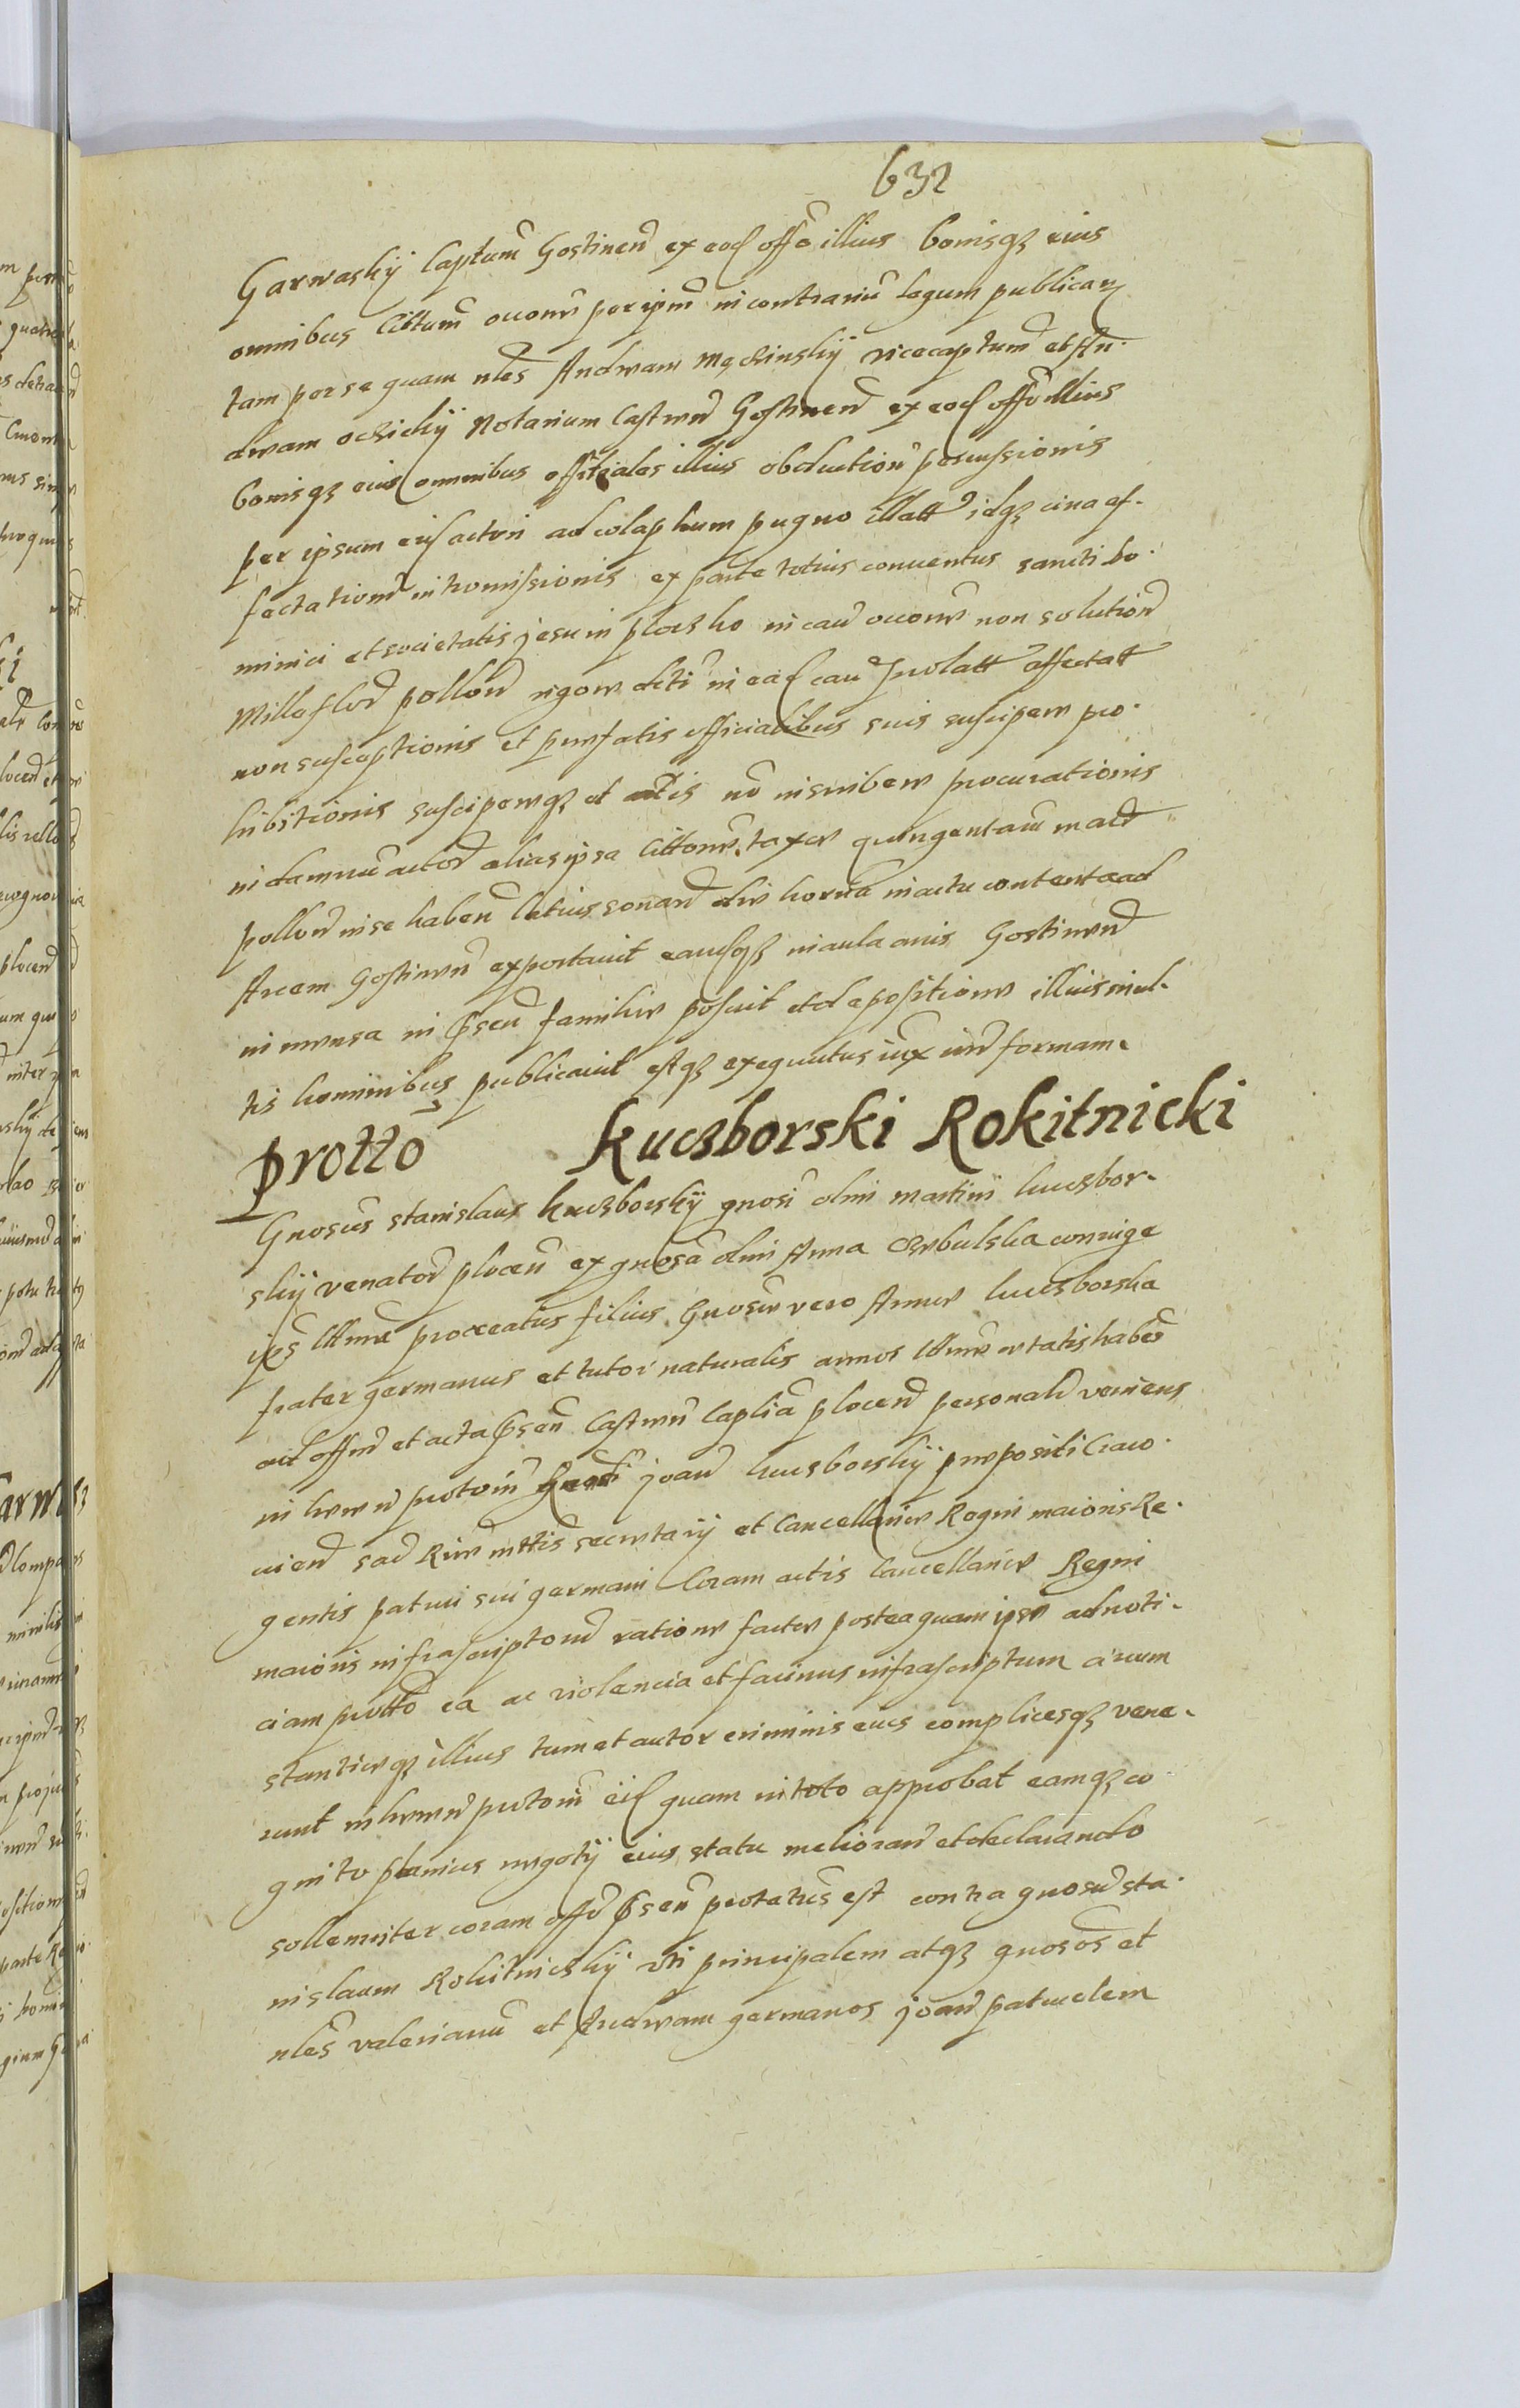 632
Garwaskÿ Captum Gostinen ex eod offo illius bonisqz eius
omnibus Cittum occone per ipm in contrariu legum publicarz
tam per se quam nles Andream Męchinskÿ vicecaptum et An-
dream ochickÿ Notarium Castren Gostinen ex eod offo illius
bonisqz eius omnibus officiales illius obductione percussionis
per ipsum eius actori ad colaphum pugno illatt idqz circa af-
fectatione intromissionis ex parte totius conuentus sancti do-
minici et societatis Jesu in plocsko in cau occone non solution
Mille flor pollon vigore dcti in ead cau latt affectatt
non susceptionis et prefatis officialibus suis suscipere pro-
hibitionis suscipereqz et actis no inscribere procurationis
in damnu actor alias ipsa Cittone taxa quingentaru marc
pollon in se haben latius sonan die horna in actu content ad
Arcem Gostinen exportauit eandqz in aula arcis Gostinen
in mensa in psen familiae posuit et depositione illius mul-
tis hominibus publicauit estqz exequutus iux iur formam.
Protto Kuczborski Rokitnicki
Gnosus stanislaus kuczborskÿ gnosi olim martini kuczbor-
skÿ venator plocen ex gnosa olim Anna Cembulska coniuge
ips lttima procreatus filius Gnosae vero Annae kuczborska
frater germanus et tutor naturalis annos lttimae aetatis habes
ad offm et acta psen Castren Caplia plocen personalr veniens
in haeren protoni Gnosi joan kuczborskÿ praepositi Craco-
uien sac Riae mttis secretarÿ et Cancellariae Regni maioris Re-
gentis patrui sui germani Coram actis Cancellariae Regni
maioris infrascriptorum ratione factae posteaquam ipse ad noti-
ciam protto ea ac violencia et facinus infrascriptum circum
stantiaeqz illius tum et autor criminis eius complicesqz vene-
runt inhaeren protoni eid quam in toto approbat eamqz co
gnito planius negotÿ eius statu melioran et declarando
sollemniter coram offo psen protatus est contra gnosu sta-
nislaum Rokitnickÿ vti principalem atqz gnosos et
nles valerianu et Andream germanos joan patruelem